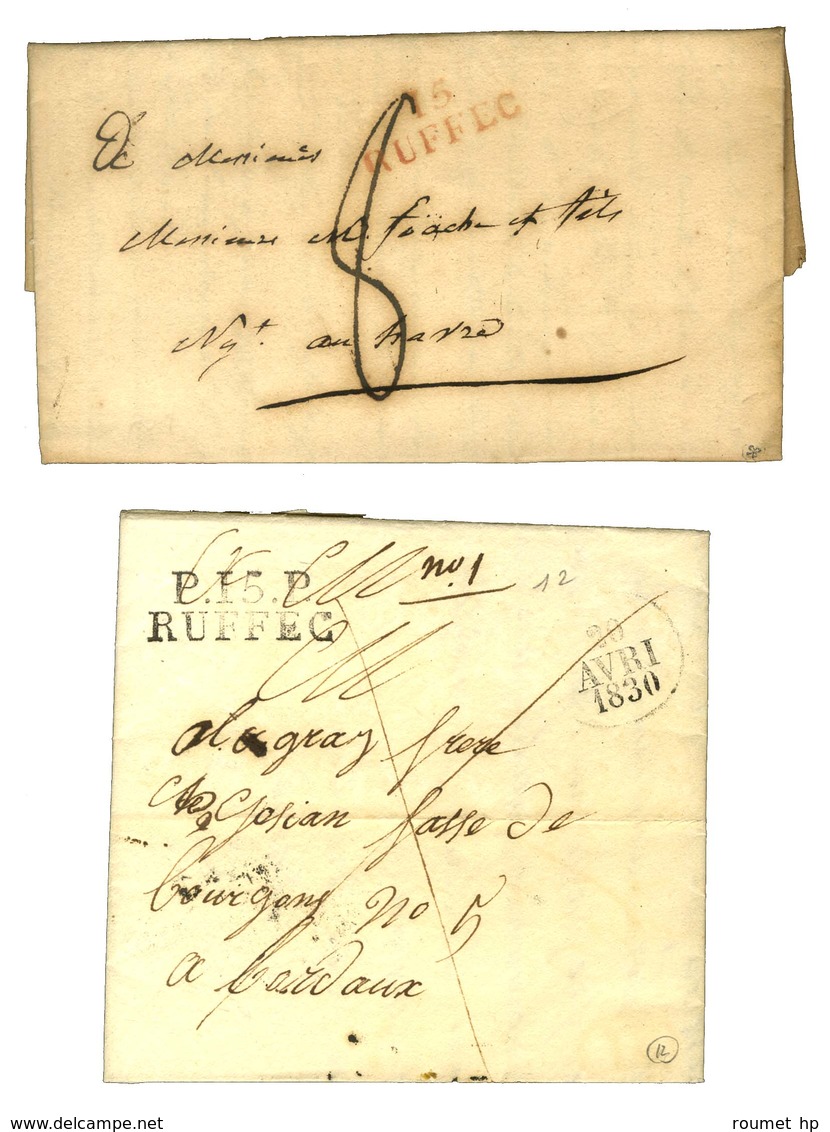 15
RUFFEC
De Messieurs
Messieurs M. foäche et fils
Ngt. au havre
8
P.15.P.
RUFFEC
no. 1
12
20
AVRI
1830
gray frere
fosse de
bourgong no 5
a bordaux
12
www.delcampe.net
roumet hp